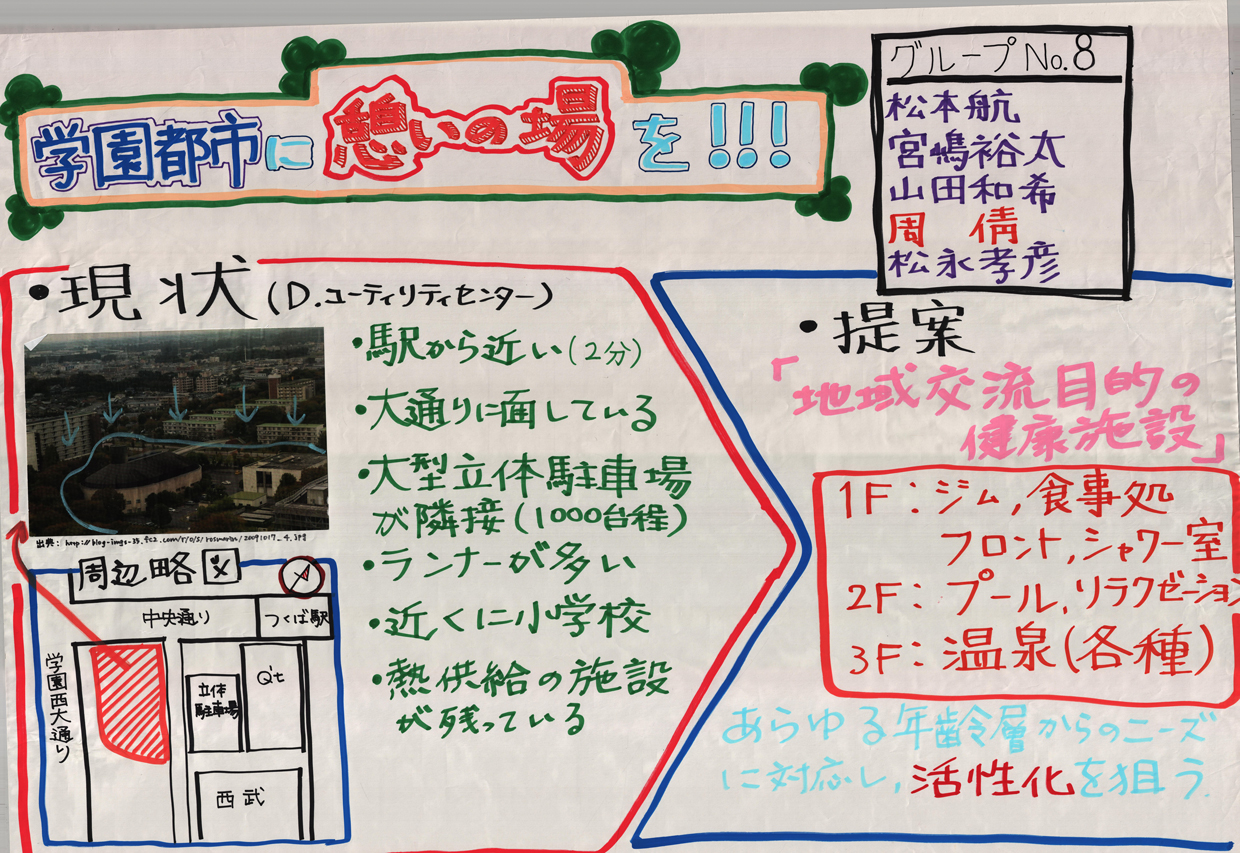 学園都市に憩いの場を!!!
グループNo.8
松本航
宮嶋裕太
山田和希
周 倩
松永孝彦
・現状(D.ユーティリティセンター)
・駅から近い(2分)
・大通りに面している
・大型立体駐車場
が隣接(1000台程)
・ランナーが多い
・近くに小学校
・熱供給の施設
が残っている
出典:
周辺略図
中央通り
つくば駅
学園西大通り
立体
駐車場
Q't
西武
・提案
「地域交流目的の
健康施設」
1F:ジム,食事処
フロント,シャワー室
2F:プール,リラクゼーション
3F:温泉(各種)
あらゆる年齢層からのニーズ
に対応し,活性化を狙う.